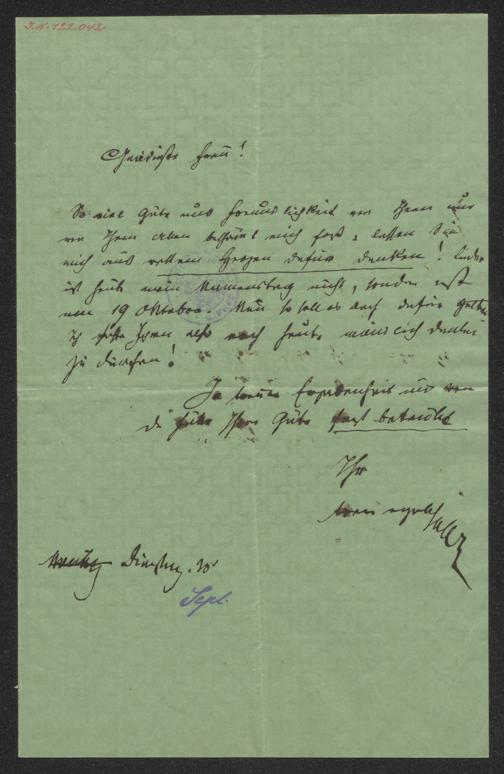 I.N. 122.042
Gnädigste Frau!
So viel Güte und Freundlichkeit von Ihnen und
von Ihren allen beschämt mich fast, lassen Sie
mich aus vollem Herzen dafür danken! Leider
ist heute mein Namenstag nicht, sondern erst
am 19 Oktober. Nun so soll es auch dafür gelten
Ihnen also noch heute danken
zu dürfen!
In treuer Ergebenheit und von
der Ihrer Güte fast
Ihr
treu ergeb
Dienstag. 30
Sept.